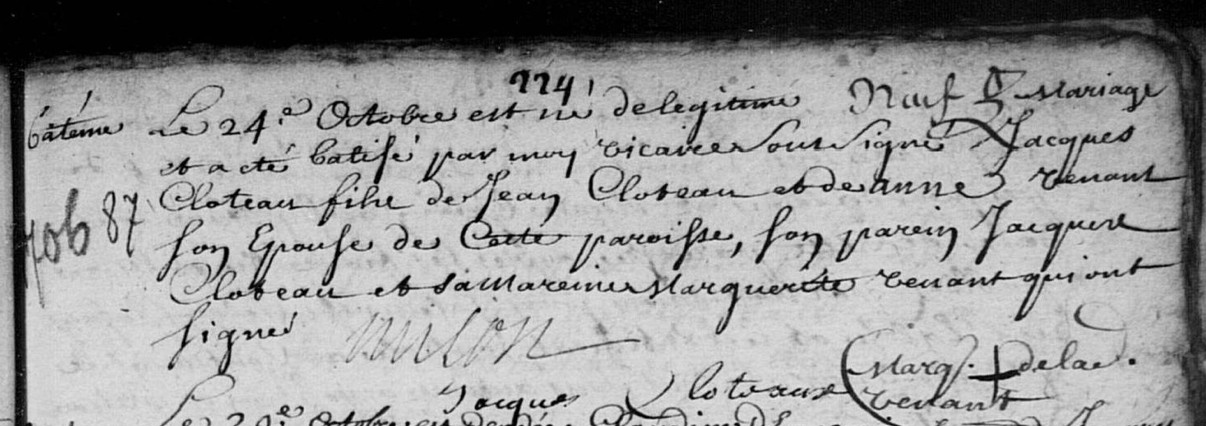 224
batême Le 24.e Octobre est né de legitime mariage
et a eté batisé par moy vicaire sous signé Jacques
706 87 Cloteau fihs de Jean Cloteau et de anne venant
son Epouse de Cette paroisse, son parein Jacques
Cloteau et sa mareine Marguerite venant qui ont
signé
Jacques Cloteaux Marg. + de lad.
venant
Octobre est